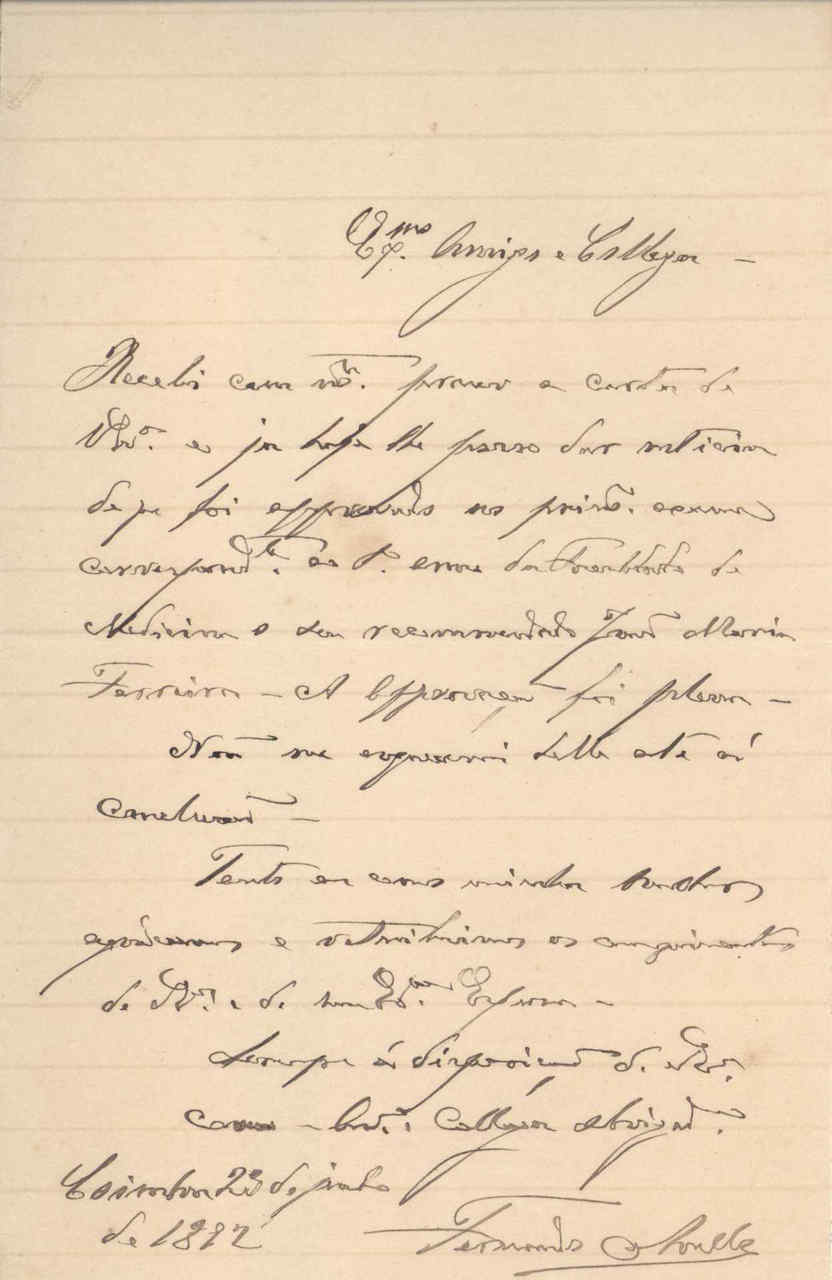 Ex.mo Amigo e Collega —
Recebi com m.to prazer a carta de
V. Ex.a e ja hoje lhe posso dar noticia
de q foi approvado no prim.o exame
correspond.te ao 1.o anno da Faculdade de
Medicina o seu recommendado José Maria
Ferreira — A Approvação foi plena —
Não me esquecerei delle até á
conclusão —
Tanto eu como minha
agradecemos e retribuimos os cumprimentos
de V. Ex.a e de sua Ex.ma Esposa —
sempre á disposição de V. Ex.a
como Collega obrigad.mo
Coimbra 23 de junho
de 1882
Fernando de Mello